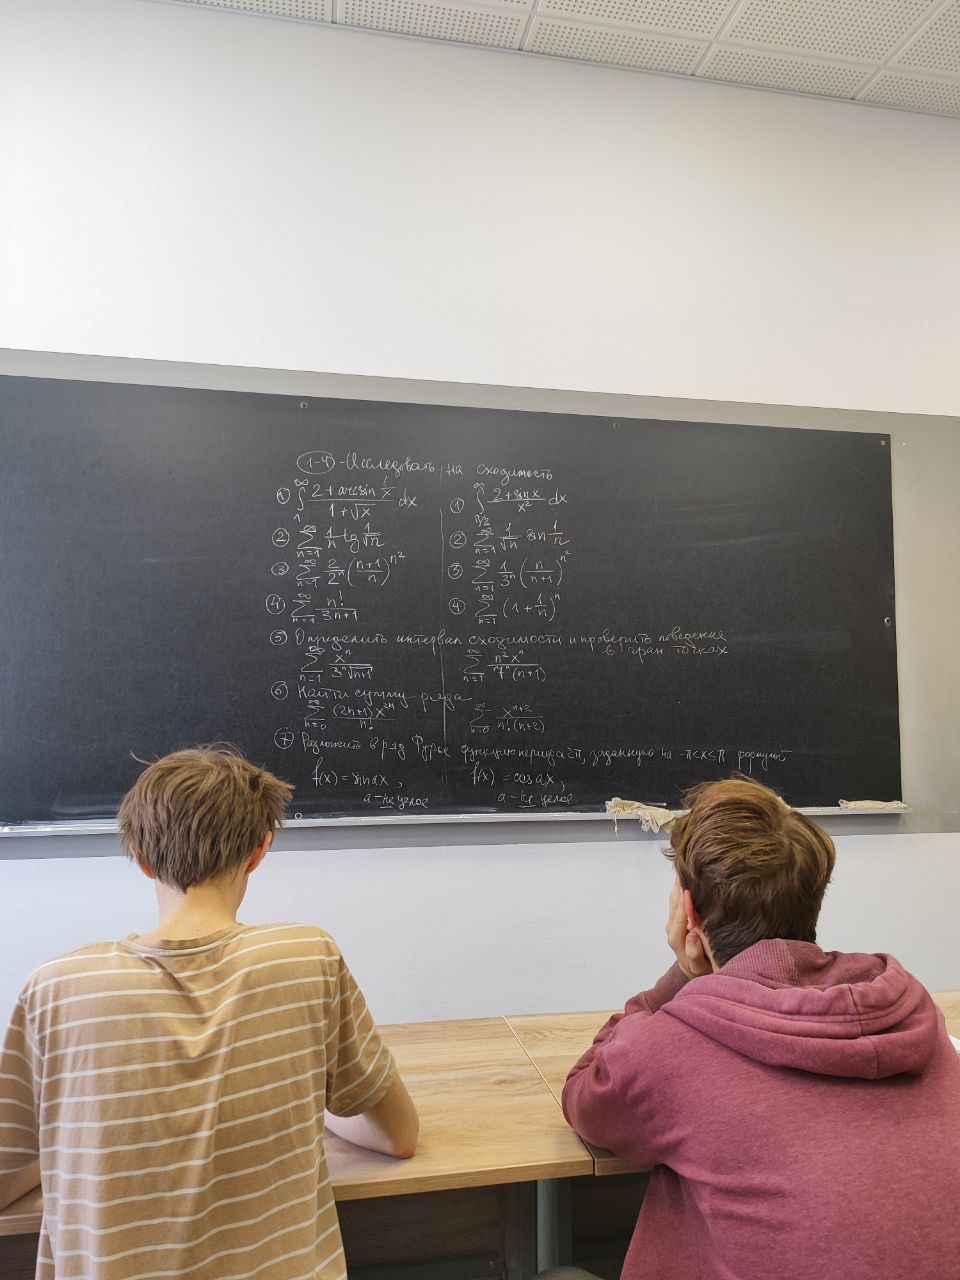 1-4 - Исследовать на сходимость
① ∫₁^∞ (2 + arcsin 1/x)/(1 + √x) dx ① ∫_{π/2}^∞ (2 + sin x)/x² dx
② ∑_{n=1}^∞ 1/n tg 1/√n ② ∑_{n=1}^∞ 1/√n sin 1/n
③ ∑_{n=1}^∞ 2/2ⁿ ((n+1)/n)^{n²} ③ ∑_{n=1}^∞ 1/3ⁿ (n/(n+1))^{n²}
④ ∑_{n=1}^∞ n!/(3n+1) ④ ∑_{n=1}^∞ (1 + 1/n)ⁿ
⑤ Определить интервал сходимости и проверить поведение
в гран. точках
∑_{n=1}^∞ xⁿ/(3ⁿ√(n+1)) ∑_{n=1}^∞ n²xⁿ/(7ⁿ(n+1))
⑥ Найти сумму ряда
∑_{n=0}^∞ (2n+1)x^{2n}/n! ∑_{n=0}^∞ x^{n+2}/(n!(n+2))
⑦ Разложить в ряд Фурье функцию периода 2π, заданную на -π<x<π формулой
f(x) = sin ax, f(x) = cos ax,
a - не целое a - не целое